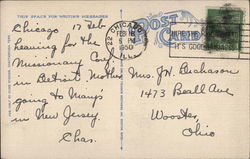 THIS SPACE FOR WRITING MESSAGES
POST CARD
CHICAGO
FEB 18
PM
1950
ILL.
Chicago 17 Feb
Leaving for the
Missionary Conf
in Detroit. Mother
going to Mary's
in New Jersey.
Chas.
Mrs. J.W. Buchason
1473 Beall Ave
Wooster,
Ohio